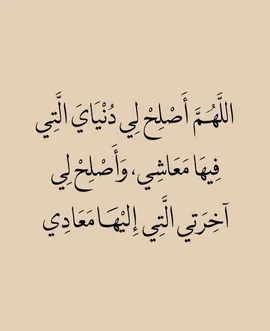 اللَّهُمَّ أَصْلِحْ لِي دُنْيَايَ الَّتِي
فِيهَا مَعَاشِي، وَأَصْلِحْ لِي
آخِرَتي الَّتِي إِليْهَا مَعَادِي